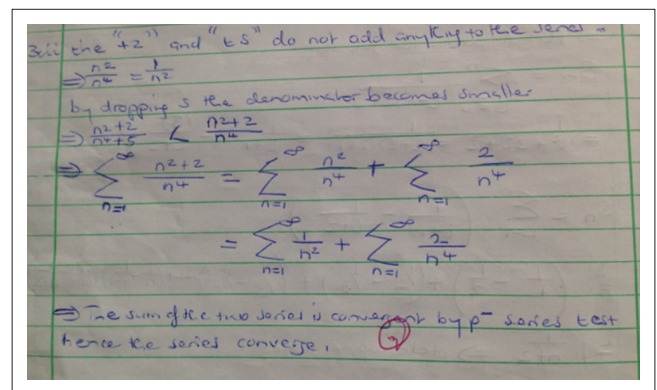 3.ii the "+2" and "+5" do not add anything to the series.
⇒ n²/n⁴ = 1/n²
by dropping 5 the denominator becomes smaller
⇒ n²+2/n⁴+5 < n²+2/n⁴
⇒ ∑_{n=1}^{∞} n²+2/n⁴ = ∑_{n=1}^{∞} n²/n⁴ + ∑_{n=1}^{∞} 2/n⁴
= ∑_{n=1}^{∞} 1/n² + ∑_{n=1}^{∞} 2/n⁴
⇒ The sum of the two series is convergent by p- series test
hence the series converge.